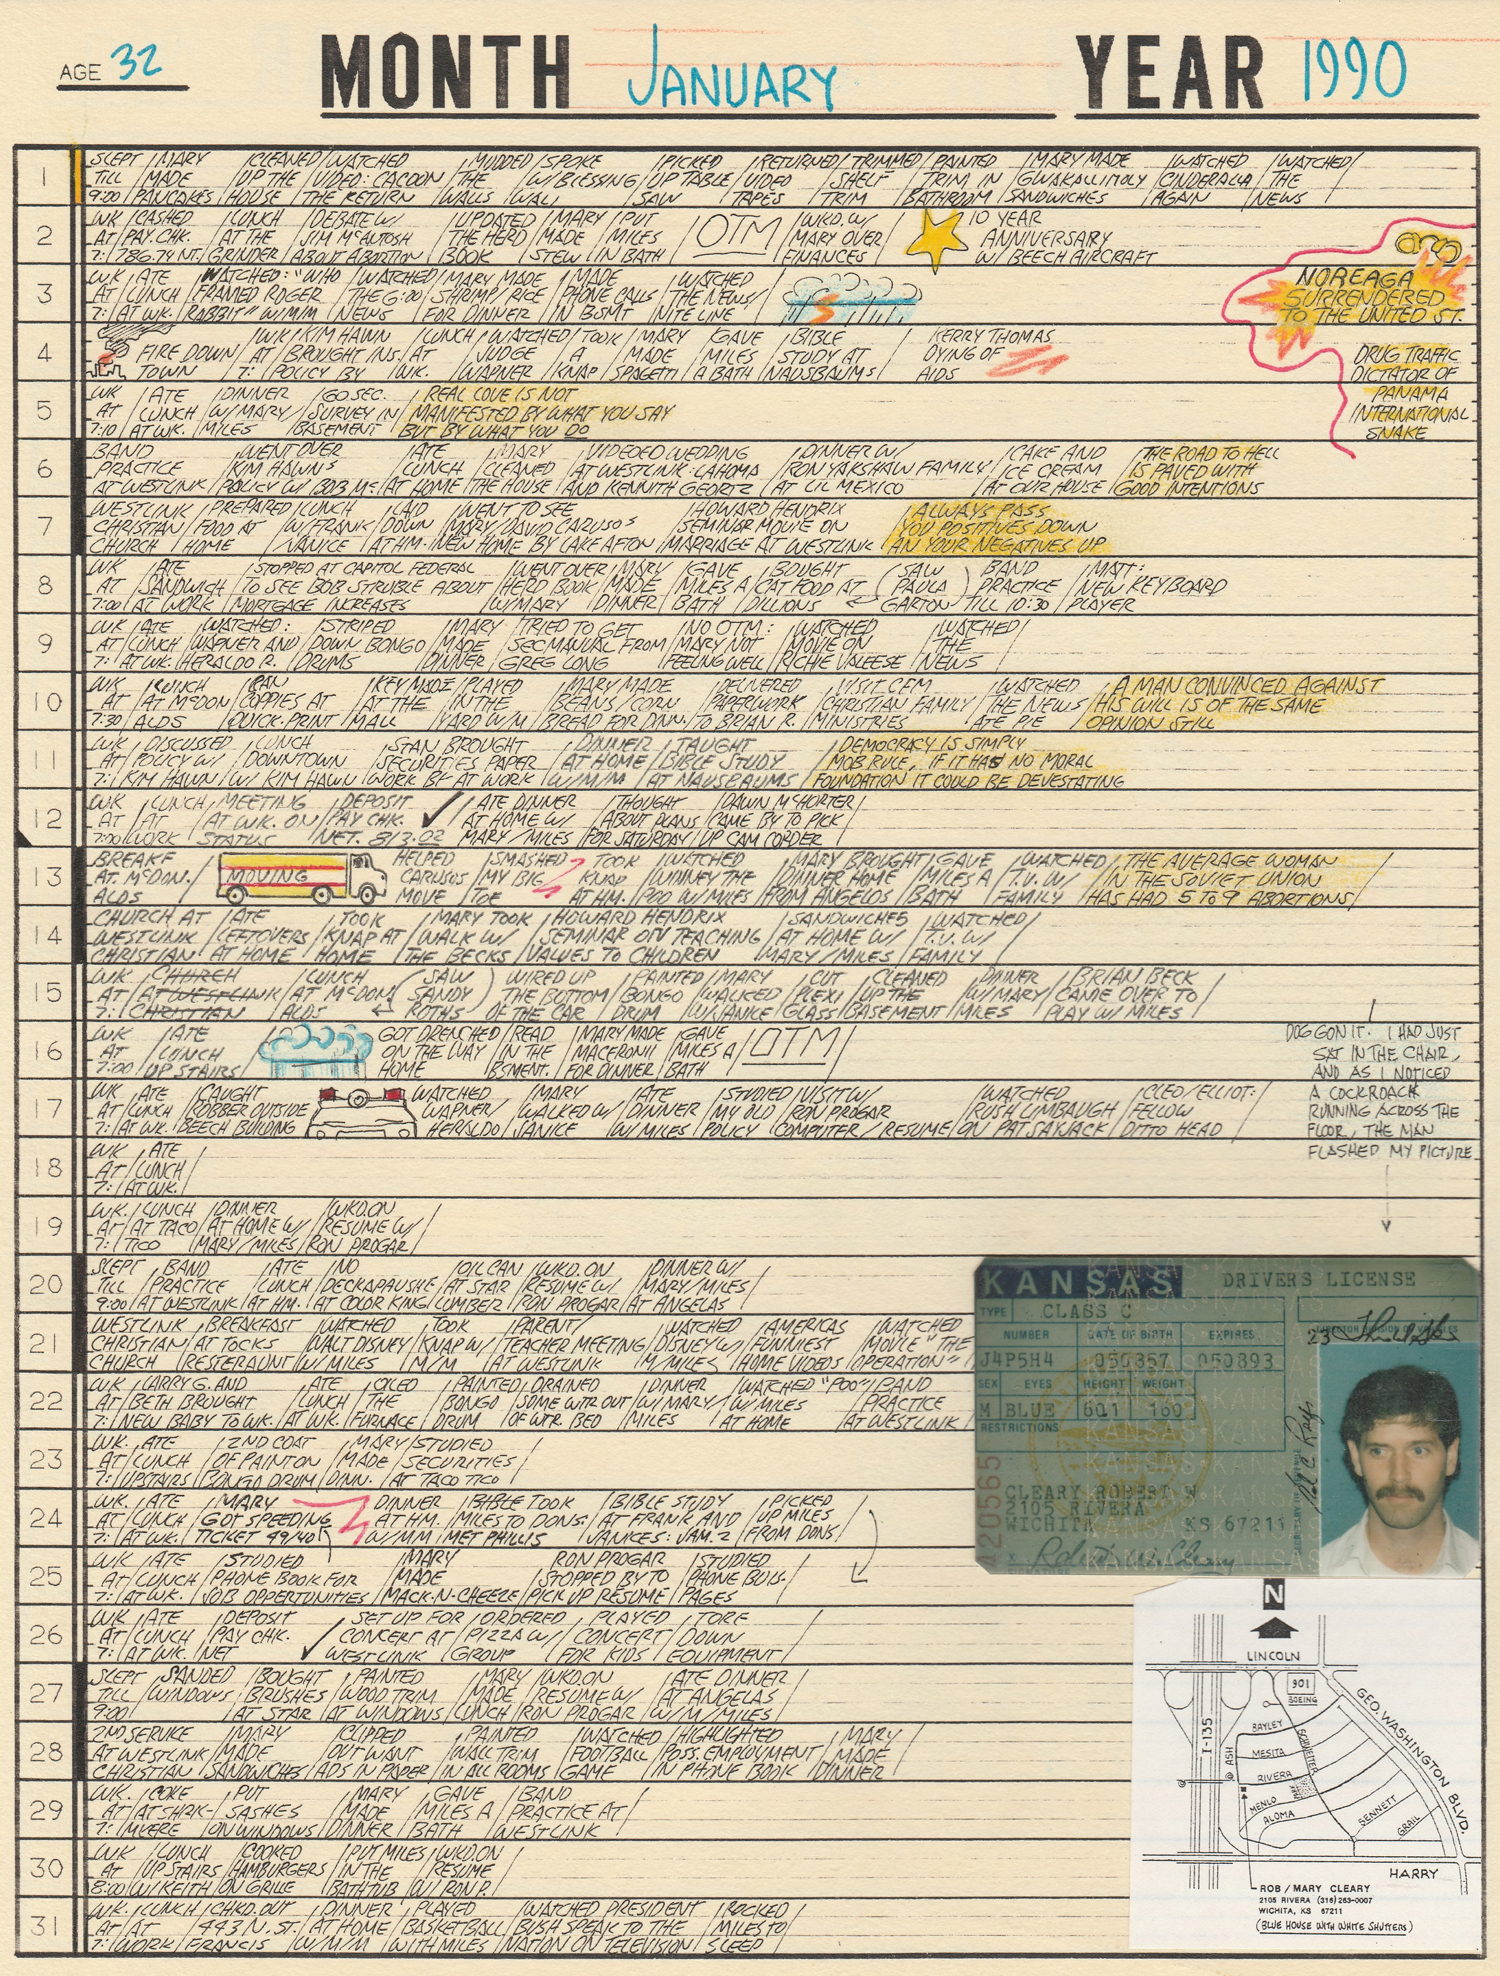 AGE 32 MONTH JANUARY YEAR 1990
1
SLEPT / MARY / CLEANED / WATCHED / MUDDED / SPOKE / PICKED / RETURNED / TRIMMED / PAINTED / MARY MADE / WATCHED / WATCHED /
TILL / MADE / UP THE / VIDEO: CACOON / THE / W/ BLESSING / UP TABLE / VIDEO / SHELF / TRIM IN / GWAKALLIMOLY / CINDERALLA / THE
9:00 / PANCAKES / HOUSE / THE RETURN / WALLS / WALL / SAW / TAPES / TRIM / BATHROOM / SANDWICHES / AGAIN / NEWS
2
WK / CASHED / LUNCH / DEBATE W/ / UPDATED / MARY / PUT / OTM / WKD. W/ / 10 YEAR
AT / PAY. CHK. / AT THE / JIM McANTOSH / THE HERD / MADE / MILES / MARY OVER / ANNIVERSARY
7: / 786.79 NT. / GRINDER / ABOUT ABORTION / BOOK / STEW / IN BATH / FINANCES / W/ BEECH AIRCRAFT
3
WK / ATE / WATCHED: "WHO / WATCHED / MARY MADE / MADE / WATCHED
AT / LUNCH / FRAMED ROGER / THE 6:00 / SHRIMP/RICE / PHONE CALLS / THE NEWS/
7: / AT WK. / RABBIT" W/M/M / NEWS / FOR DINNER / IN BSMT / NITE LINE
NOREAGA
SURRENDERED
TO THE UNITED ST.
DRUG TRAFFIC
DICTATOR OF
PANAMA
INTERNATIONAL
SNAKE
4
WK / KIM HAWN / LUNCH / WATCHED / TOOK / MARY / GAVE / BIBLE / KERRY THOMAS
FIRE DOWN / AT / BROUGHT INS. / AT / JUDGE / A / MADE / MILES / STUDY AT / DYING OF
TOWN / 7: / POLICY BY / WK. / WAPNER / KNAP / SPAGETTI / A BATH / NAUSBAUMS / AIDS
5
WK / ATE / DINNER / GO SEC. / REAL LOVE IS NOT
AT / LUNCH / W/ MARY / SURVEY IN / MANIFESTED BY WHAT YOU SAY
7:10 / AT WK. / MILES / BASEMENT / BUT BY WHAT YOU DO
6
BAND / WENT OVER / ATE / MARY / VIDEOED WEDDING / DINNER W/ / CAKE AND / THE ROAD TO HELL
PRACTICE / KIM HAWN'S / LUNCH / CLEANED / AT WESTLINK: LAHOMA / RON YAKSHAW FAMILY / ICE CREAM / IS PAVED WITH
AT WESTLINK / POLICY W/ BOB Mc. / AT HOME / THE HOUSE / AND KENNITH GEORTZ / AT LIL MEXICO / AT OUR HOUSE / GOOD INTENTIONS
7
WESTLINK / PREPARED / LUNCH / LAID / WENT TO SEE / HOWARD HENDRIX / ALWAYS PASS
CHRISTIAN / FOOD AT / W/ FRANK / DOWN / MARY/DAVID CARUSO'S / SEMINAR MOVIE ON / YOU POSITIVES DOWN
CHURCH / HOME / JANICE / AT HM. / NEW HOME BY LAKE AFTON / MARRIAGE AT WESTLINK / AN YOUR NEGATIVES UP
8
WK / ATE / STOPPED AT CAPITOL FEDERAL / WENT OVER / MARY / GAVE / BOUGHT / (SAW / BAND / MATT:
AT / SANDWICH / TO SEE BOB STRUBLE ABOUT / HERD BOOK / MADE / MILES A / CAT FOOD AT / PAULA) / PRACTICE / NEW KEYBOARD
7:00 / AT WORK / MORTGAGE INCREASES / W/ MARY / DINNER / BATH / DILLIONS / GARTON / TILL 10:30 / PLAYER
9
WK / ATE / WATCHED: / STRIPED / MARY / TRIED TO GET / NO OTM: / WATCHED / WATCHED
AT / LUNCH / WAPNER AND / DOWN BONGO / MADE / SEC MANUAL FROM / MARY NOT / MOVIE ON / THE
7: / AT WK. / HERALDO R. / DRUMS / DINNER / GREG LONG / FEELING WELL / RICHIE VALEESE / NEWS
10
WK / LUNCH / RAN / KEY MADE / PLAYED / MARY MADE / DELIVERED / VISIT CFM / WATCHED / A MAN CONVINCED AGAINST
AT / AT McDON / COPPIES AT / AT THE / IN THE / BEANS/CORN / PAPERWORK / CHRISTIAN FAMILY / THE NEWS / HIS WILL IS OF THE SAME
7:30 / ALDS / QUICK-PRINT / MALL / YARD W/M / BREAD FOR DINN. / TO BRIAN R. / MINISTRIES / ATE PIE / OPINION STILL
11
WK / DISCUSSED / LUNCH / STAN BROUGHT / DINNER / TAUGHT / DEMOCRACY IS SIMPLY
AT / POLICY W/ / DOWNTOWN / SECURITIES PAPER / AT HOME / BIBLE STUDY / MOB RULE, IF IT HAS NO MORAL
7: / KIM HAWN / W/ KIM HAWN / WORK BY AT WORK / W/M/M / AT NAUSBAUMS / FOUNDATION IT COULD BE DEVESTATING
12
WK / LUNCH / MEETING / DEPOSIT / ATE DINNER / THOUGHT / DAWN McHORTER
AT / AT / AT WK. ON / PAY CHK. ✓ / AT HOME W/ / ABOUT PLANS / CAME BY TO PICK
7:00 / WORK / STATUS / NET. 813.02 / MARY/MILES / FOR SATURDAY / UP CAM CORDER
13
BREAKF / MOVING / HELPED / SMASHED / TOOK / WATCHED / MARY BROUGHT / GAVE / WATCHED / THE AVERAGE WOMAN
AT. McDON. / CARUSOS / MY BIG / KNAP / WINNEY THE / DINNER HOME / MILES A / T.V. W/ / IN THE SOVIET UNION
ALDS / MOVE / TOE / AT HM. / POO W/ MILES / FROM ANGELOS / BATH / FAMILY / HAS HAD 5 TO 9 ABORTIONS
14
CHURCH AT / ATE / TOOK / MARY TOOK / HOWARD HENDRIX / SANDWICHES / WATCHED
WESTLINK / LEFTOVERS / KNAP AT / WALK W/ / SEMINAR ON TEACHING / AT HOME W/ / T.V. W/
CHRISTIAN / AT HOME / HOME / THE BECKS / VALUES TO CHILDREN / MARY/MILES / FAMILY
15
WK / CHURCH / LUNCH / (SAW / WIRED UP / PAINTED / MARY / CUT / CLEANED / DINNER / BRIAN BECK
AT / AT WESTLINK / AT McDON / SANDY) / THE BOTTOM / BONGO / WALKED / PLEXI / UP THE / W/ MARY / CAME OVER TO
7: / CHRISTIAN / ALDS / ROTHS / OF THE CAR / DRUM / W/ JANICE / GLASS / BASEMENT / MILES / PLAY W/ MILES
16
WK / ATE / GOT DRENCHED / READ / MARY MADE / GAVE / OTM
AT / LUNCH / ON THE WAY / IN THE / MACERONII / MILES A
7:00 / UP STAIRS / HOME / BSMENT. / FOR DINNER / BATH
DOG GON IT. I HAD JUST
SAT IN THE CHAIR,
AND AS I NOTICED
A COCKROACH
RUNNING ACROSS THE
FLOOR, THE MAN
FLASHED MY PICTURE
17
WK / ATE / CAUGHT / WATCHED / MARY / ATE / STUDIED / VISIT W/ / WATCHED / CLEO/ELLIOT:
AT / LUNCH / ROBBER OUTSIDE / WAPNER/ / WALKED W/ / DINNER / MY OLD / RON PROGAR / RUSH LIMBAUGH / FELLOW
7: / AT WK. / BEECH BUILDING / HERALDO / JANICE / W/ MILES / POLICY / COMPUTER/RESUME / ON PAT SAYJACK / DITTO HEAD
18
WK / ATE
AT / LUNCH
7: / AT WK.
19
WK. / LUNCH / DINNER / WKD. ON
AT / AT TACO / AT HOME W/ / RESUME W/
7: / TICO / MARY/MILES / RON PROGAR
20
SLEPT / BAND / ATE / NO / OIL CAN / WKD. ON / DINNER W/
TILL / PRACTICE / LUNCH / DECKAPAUSHE / AT STAR / RESUME W/ / MARY/MILES
9:00 / AT WESTLINK / AT HM. / AT COLOR KING / LUMBER / RON PROGAR / AT ANGELAS
21
WESTLINK / BREAKFAST / WATCHED / TOOK / PARENT/ / WATCHED / AMERICAS / WATCHED
CHRISTIAN / AT TOCKS / WALT DISNEY / KNAP W/ / TEACHER MEETING / DISNEY W/ / FUNNIEST / MOVIE "THE
CHURCH / RESTERAUNT / W/ MILES / M/M / AT WESTLINK / M/MILES / HOME VIDEOS / OPERATION"
22
WK / LARRY G. AND / ATE / OILED / PAINTED / DRAINED / DINNER / WATCHED "POO" / BAND
AT / BETH BROUGHT / LUNCH / THE / BONGO / SOME WTR OUT / W/ MARY / W/ MILES / PRACTICE
7: / NEW BABY TO WK. / AT WK. / FURNACE / DRUM / OF WTR BED / MILES / AT HOME / AT WESTLINK
23
WK. / ATE / 2ND COAT / MARY / STUDIED
AT / LUNCH / OF PAINT ON / MADE / SECURITIES
7: / UPSTAIRS / BONGO DRUM / DINN. / AT TACO TICO
24
WK. / ATE / MARY / DINNER / BIBLE TOOK / BIBLE STUDY / PICKED
AT / LUNCH / GOT SPEEDING / AT HM. / MILES TO DONS: / AT FRANK AND / UP MILES
7: / AT WK. / TICKET 49/40 / W/MM / MET PHILLIS / JANICES: JAM. 2 / FROM DONS
25
WK / ATE / STUDIED / MARY / RON PROGAR / STUDIED
AT / LUNCH / PHONE BOOK FOR / MADE / STOPPED BY TO / PHONE BUIS.
7: / AT WK. / JOB OPPERTUNITIES / MACK-N-CHEEZE / PICK UP RESUME / PAGES
26
WK / ATE / DEPOSIT / SET UP FOR / ORDERED / PLAYED / TORE
AT / LUNCH / PAY CHK. / CONCERT AT / PIZZA W/ / CONCERT / DOWN
7: / AT WK. / NET ✓ / WESTLINK / GROUP / FOR KIDS / EQUIPMENT
27
SLEPT / SANDED / BOUGHT / PAINTED / MARY / WKD. ON / ATE DINNER
TILL / WINDOWS / BRUSHES / WOOD TRIM / MADE / RESUME W/ / AT ANGELAS
9:00 / AT STAR / AT WINDOWS / LUNCH / RON PROGAR / W/M/MILES
28
2ND SERVICE / MARY / CLIPPED / PAINTED / WATCHED / HIGHLIGHTED / MARY
AT WESTLINK / MADE / OUT WANT / WALL TRIM / FOOTBALL / POSS. EMPLOYMENT / MADE
CHRISTIAN / SANDWICHES / ADS IN PAPER / IN ALL ROOMS / GAME / IN PHONE BOOK / DINNER
29
WK. / COKE / PUT / MARY / GAVE / BAND
AT / AT SHRK- / SASHES / MADE / MILES A / PRACTICE AT
7: / MYERE / ON WINDOWS / DINNER / BATH / WESTLINK
30
WK / LUNCH / COOKED / PUT MILES / WKD. ON
AT / UP STAIRS / HAMBURGERS / IN THE / RESUME
8:00 / W/ KEITH / ON GRILLE / BATHTUB / W/ RON P.
31
WK. / LUNCH / CHKD. OUT / DINNER / PLAYED / WATCHED PRESIDENT / ROCKED
AT / AT / 443 N. ST. / AT HOME / BASKETBALL / BUSH SPEAK TO THE / MILES TO
7: / WORK / FRANCIS / W/M/M / WITH MILES / NATION ON TELEVISION / SLEEP
KANSAS DRIVERS LICENSE
TYPE CLASS C
NUMBER DATE OF BIRTH EXPIRES
J4P5H4 050357 050893
SEX EYES HEIGHT WEIGHT
M BLUE 601 160
RESTRICTIONS
CLEARY ROBERT W
2105 RIVERA
WICHITA KS 67211
Robert W. Cleary
A20565
23
N
LINCOLN
901
BOEING
I-135
GEO. WASHINGTON BLVD.
BAYLEY
MESITA
RIVERA
MENLO
ALOMA
@ ASH
SENNETT
GRAIL
HARRY
ROB / MARY CLEARY
2105 RIVERA (316) 263-0007
WICHITA, KS 67211
(BLUE HOUSE WITH WHITE SHUTTERS)